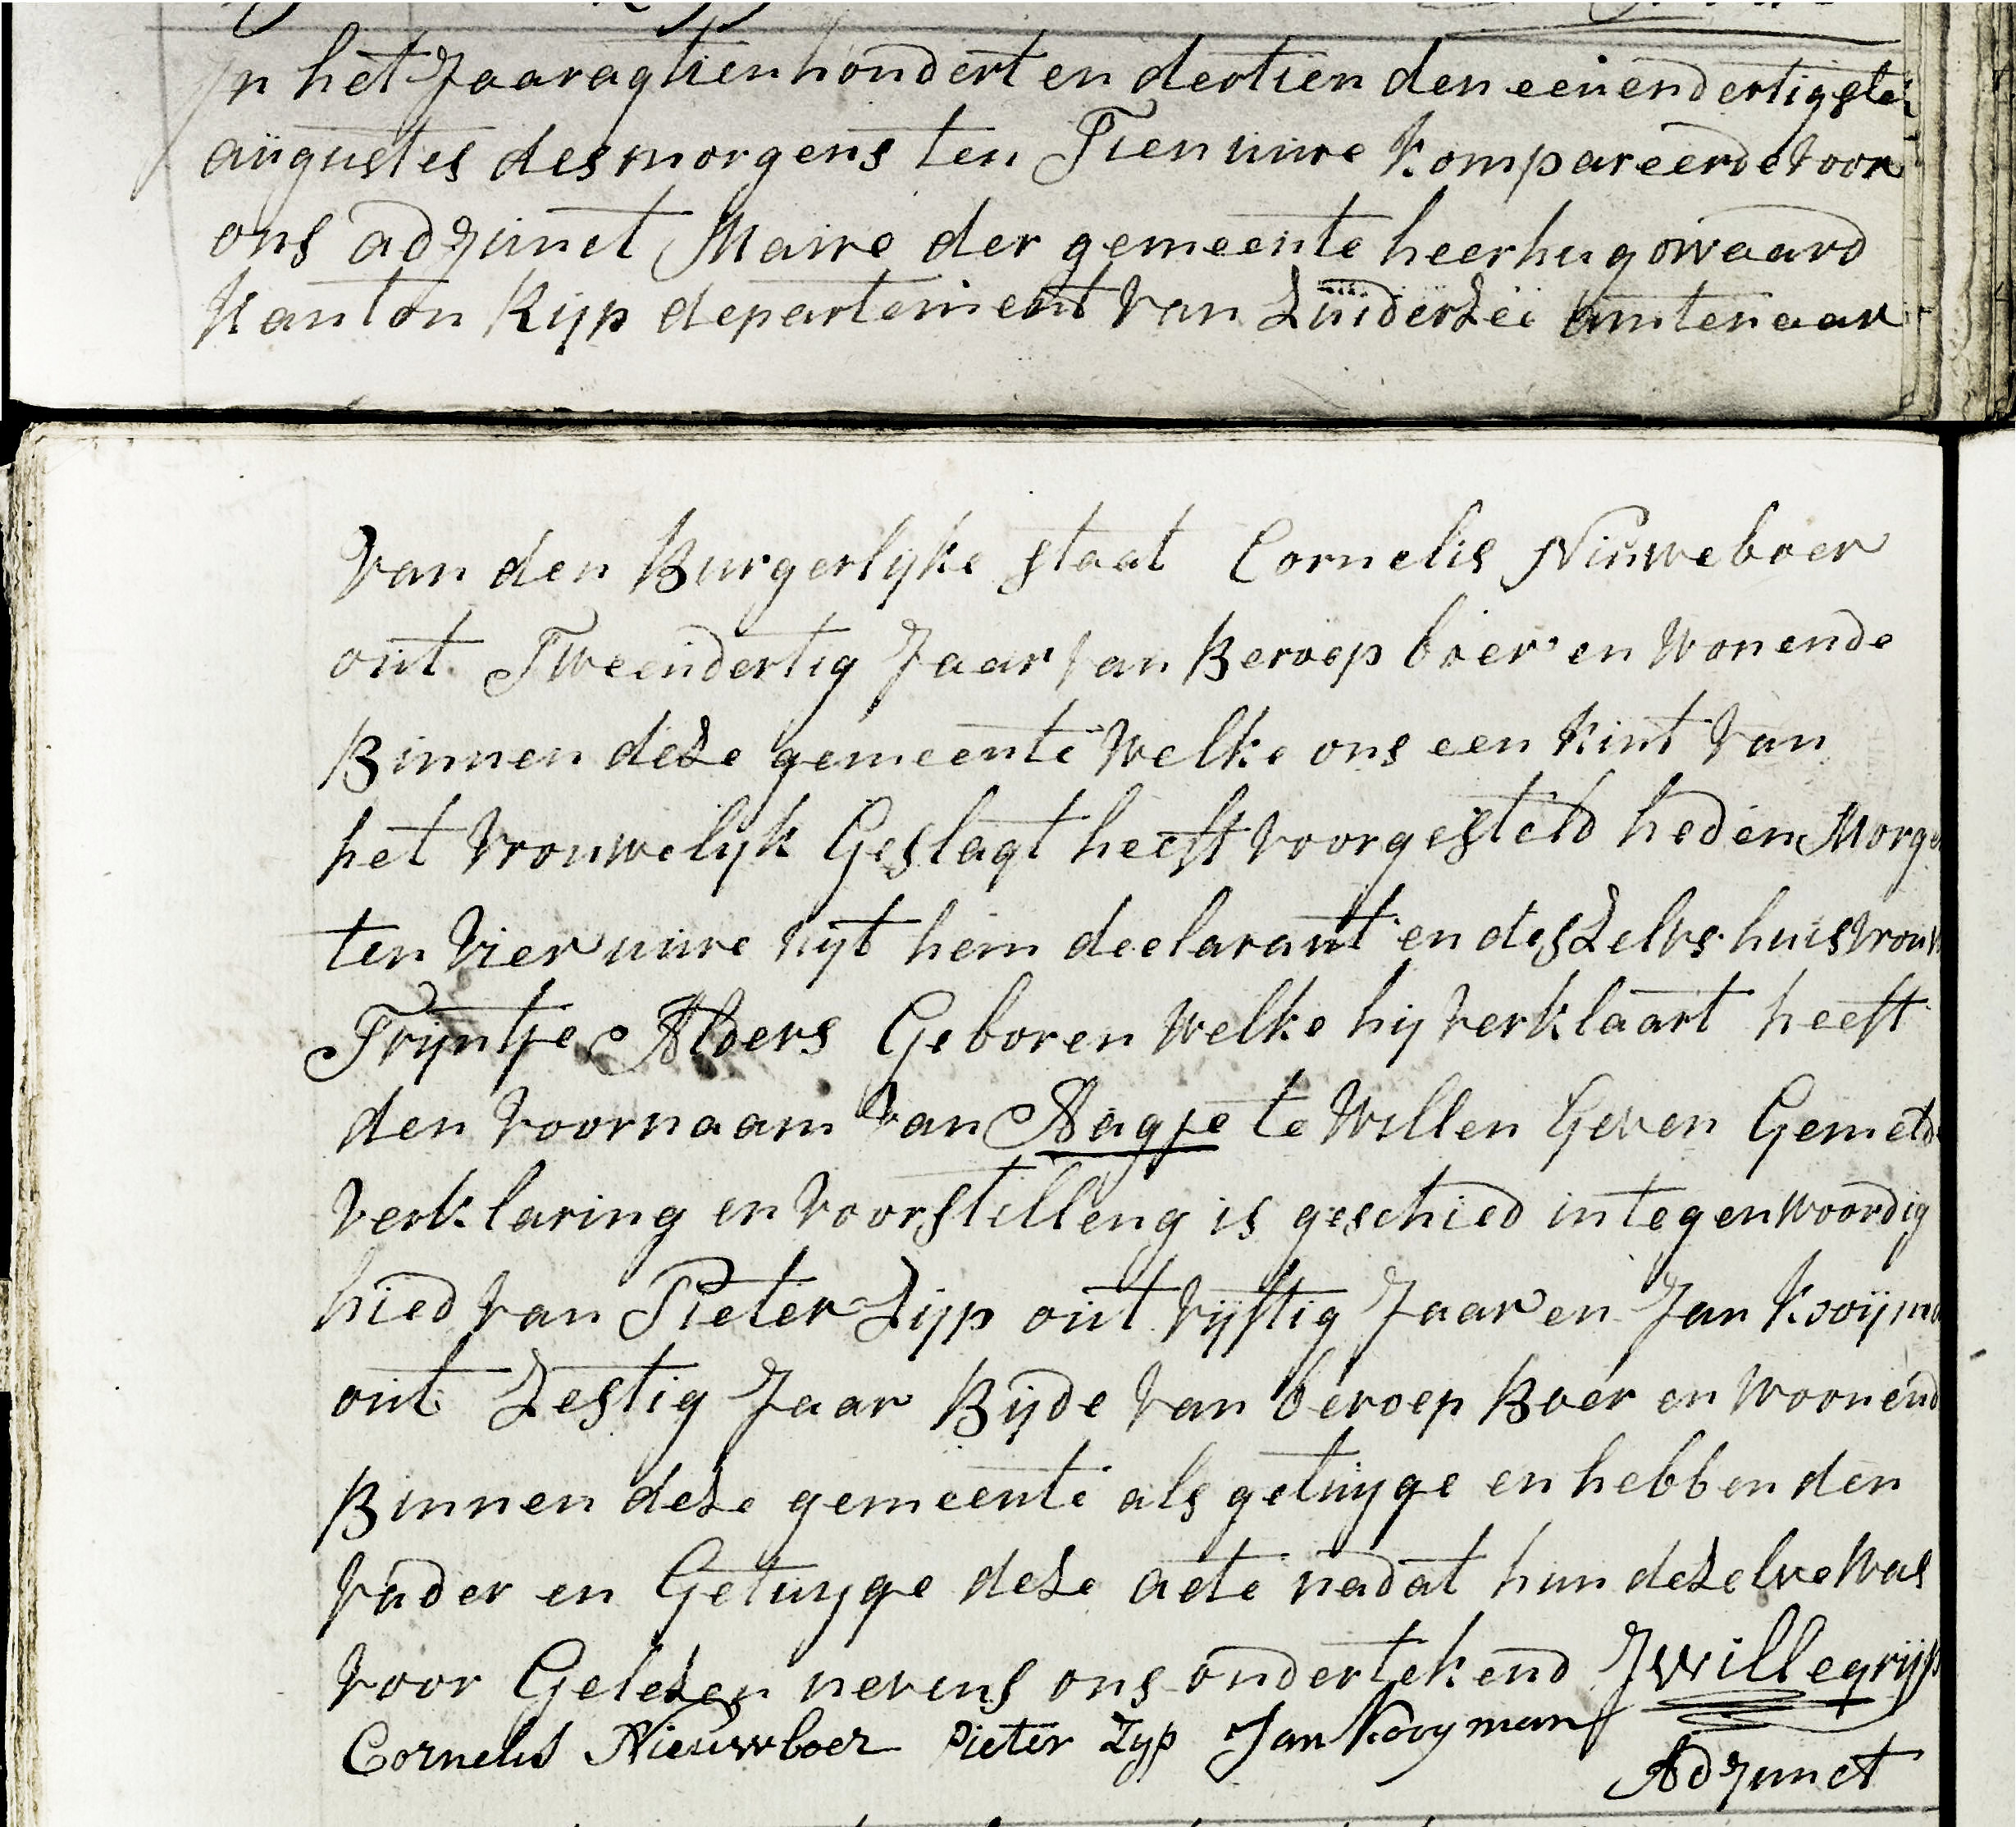 In het Jaar agtien hondert en dertien den een en dertigste
augustes des morgens ten Tien uure kompareerde voor
ons adjunct Maire der gemeente heerhugowaard
kanton Rijp departement van Zuiderzee amtenaar
van den Burgerlyke staat Cornelis Niuweboer
out Tweendertig Jaar van Beroep boer en wonende
Binnen deze gemeente welke ons een kint van
het vrouwelyk Geslagt heeft voorgesteld heden Morge
ten vier uure uyt hem declarant en deszelvs huisvrouw
Tryntje Alders Geboren welke hij verklaart heeft
den voornaam van Aagje te willen Geven Gemeld
verklaring en voorstelleng is geschied in tegenwoordig
hied van Pieter Zijp out vijftig Jaar en Jan Kooijma
out Zestig Jaar Bijde van beroep Boer en woonend
Binnen deze gemeente als getuyge en hebben den
vader en Getuyge deze acte nadat hun dezelve was
voor Gelezen nevens ons ondertekend J Willegrijp
Cornelis Nieuwboer Pieter Zyp Jan Kooyman
Adjunct